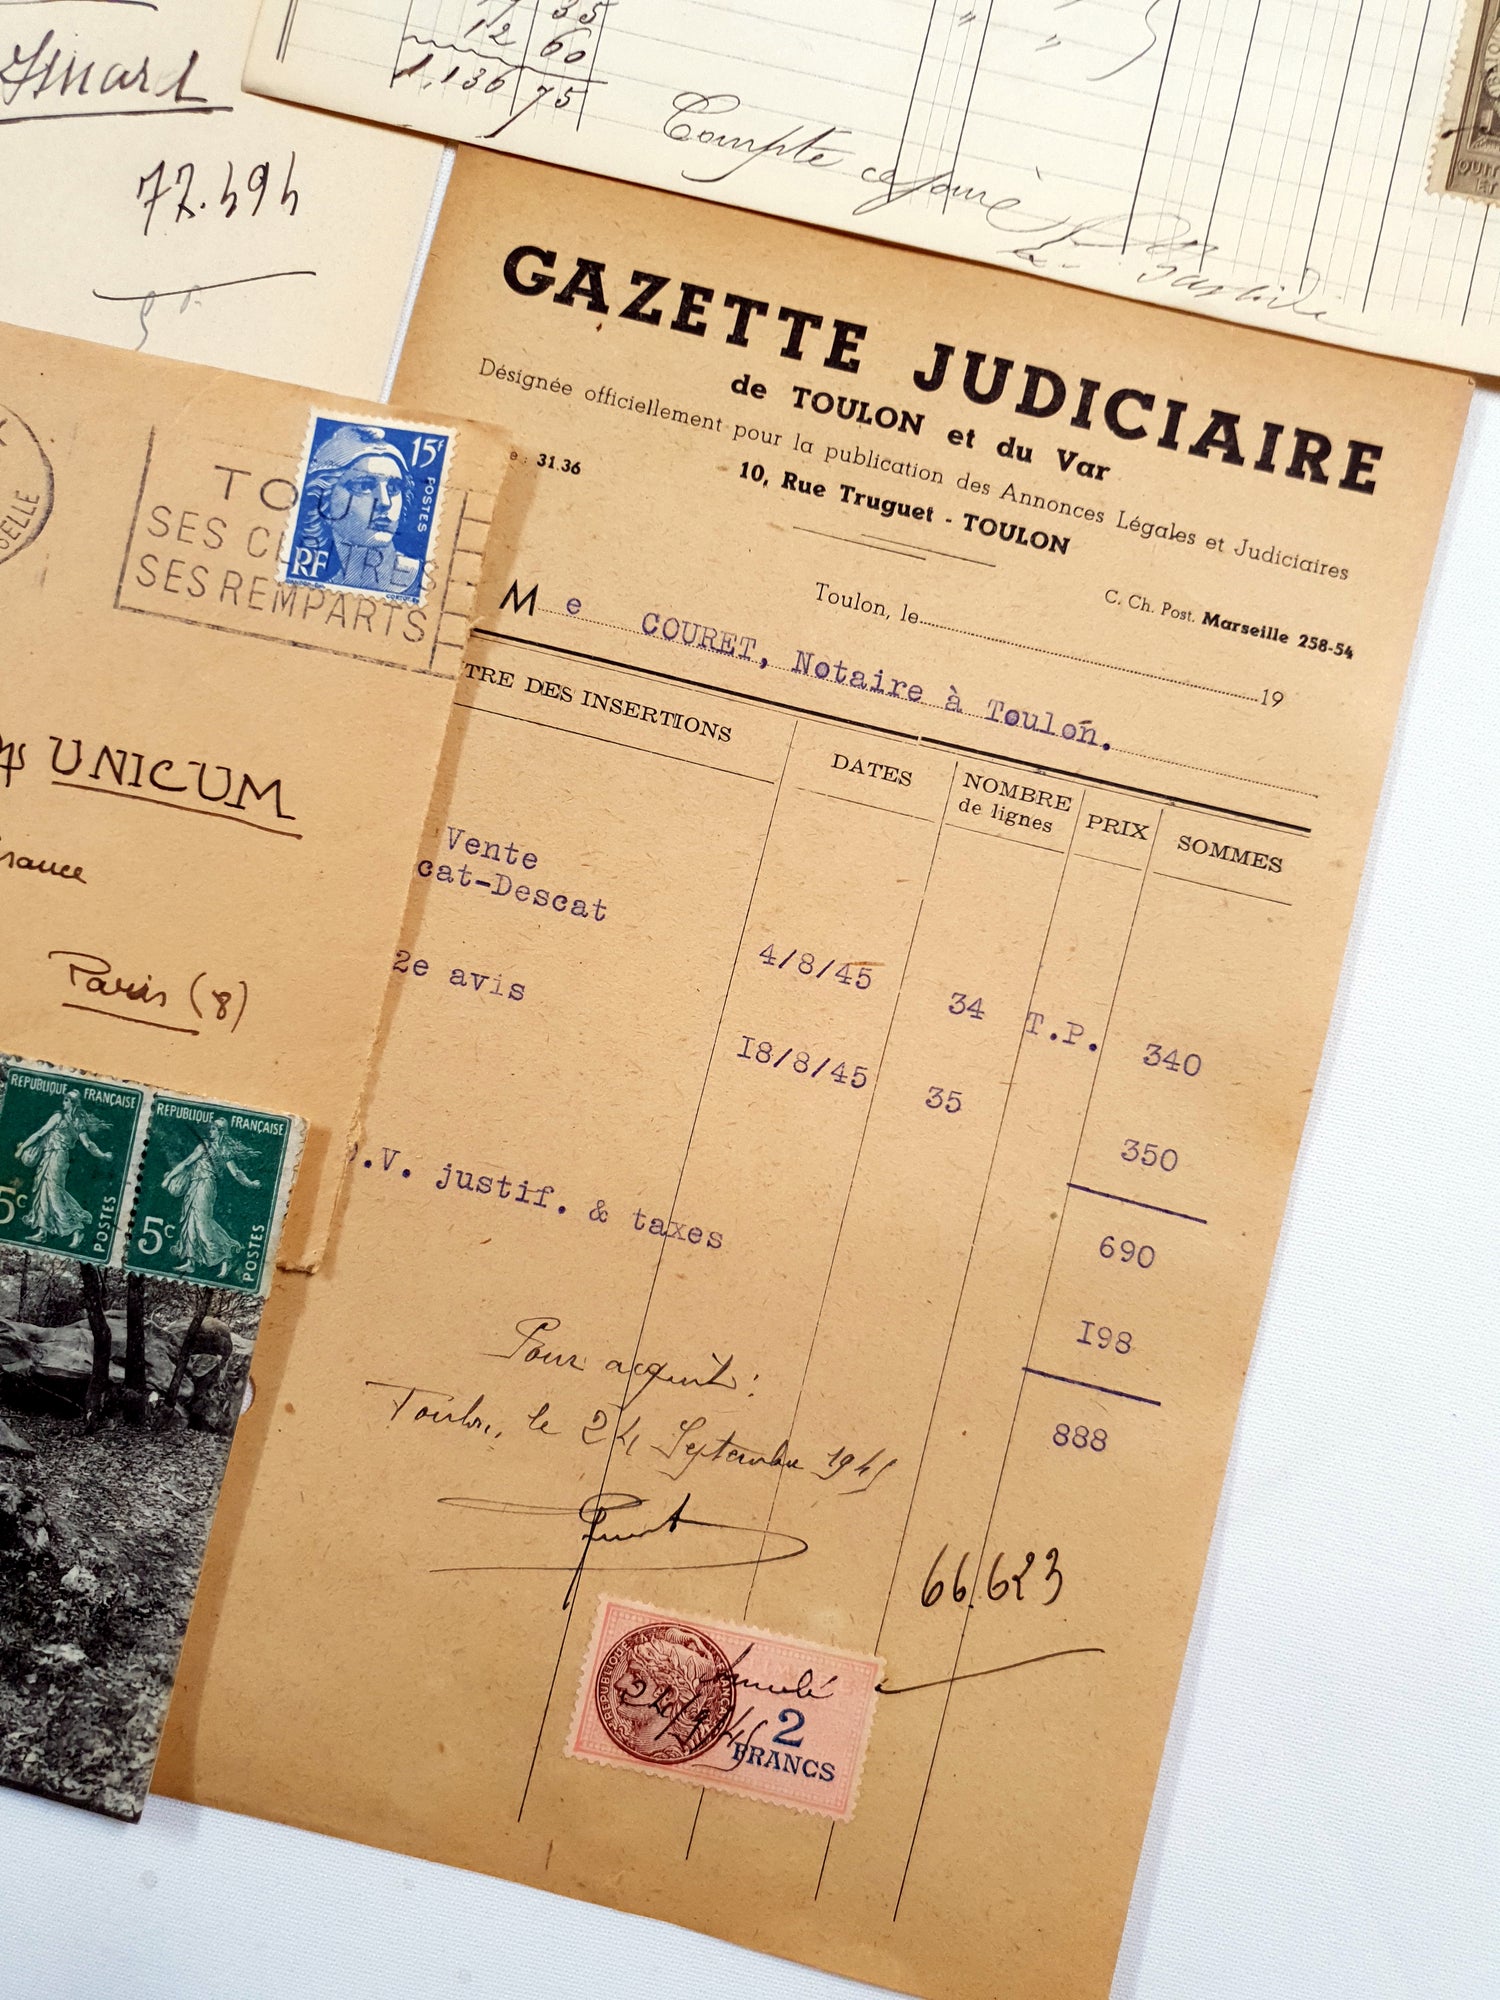 35
12 60
1.136 75
72.494
GAZETTE JUDICIAIRE
de TOULON et du Var
Désignée officiellement pour la publication des Annonces Légales et Judiciaires
10, Rue Truguet - TOULON
e : 31.36
C. Ch. Post. Marseille 258-54
Toulon, le 19
M e COURET, Notaire à Toulon.
TRE DES INSERTIONS
DATES
NOMBRE
de lignes
PRIX
SOMMES
Vente
cat-Descat
4/8/45 34 T.P. 340
2e avis
18/8/45 35 350
690
.V. justif. & taxes
198
888
Pour acquit :
Toulon, le 24 Septembre 1945
66.623
RÉPUBLIQUE FRANÇAISE
Annulé
24/9/45
2
FRANCS
15f
POSTES
RF
SES REMPARTS
SELLE
UNICUM
France
Paris (8)
REPUBLIQUE FRANÇAISE
5c
POSTES
REPUBLIQUE FRANÇAISE
5c
POSTES